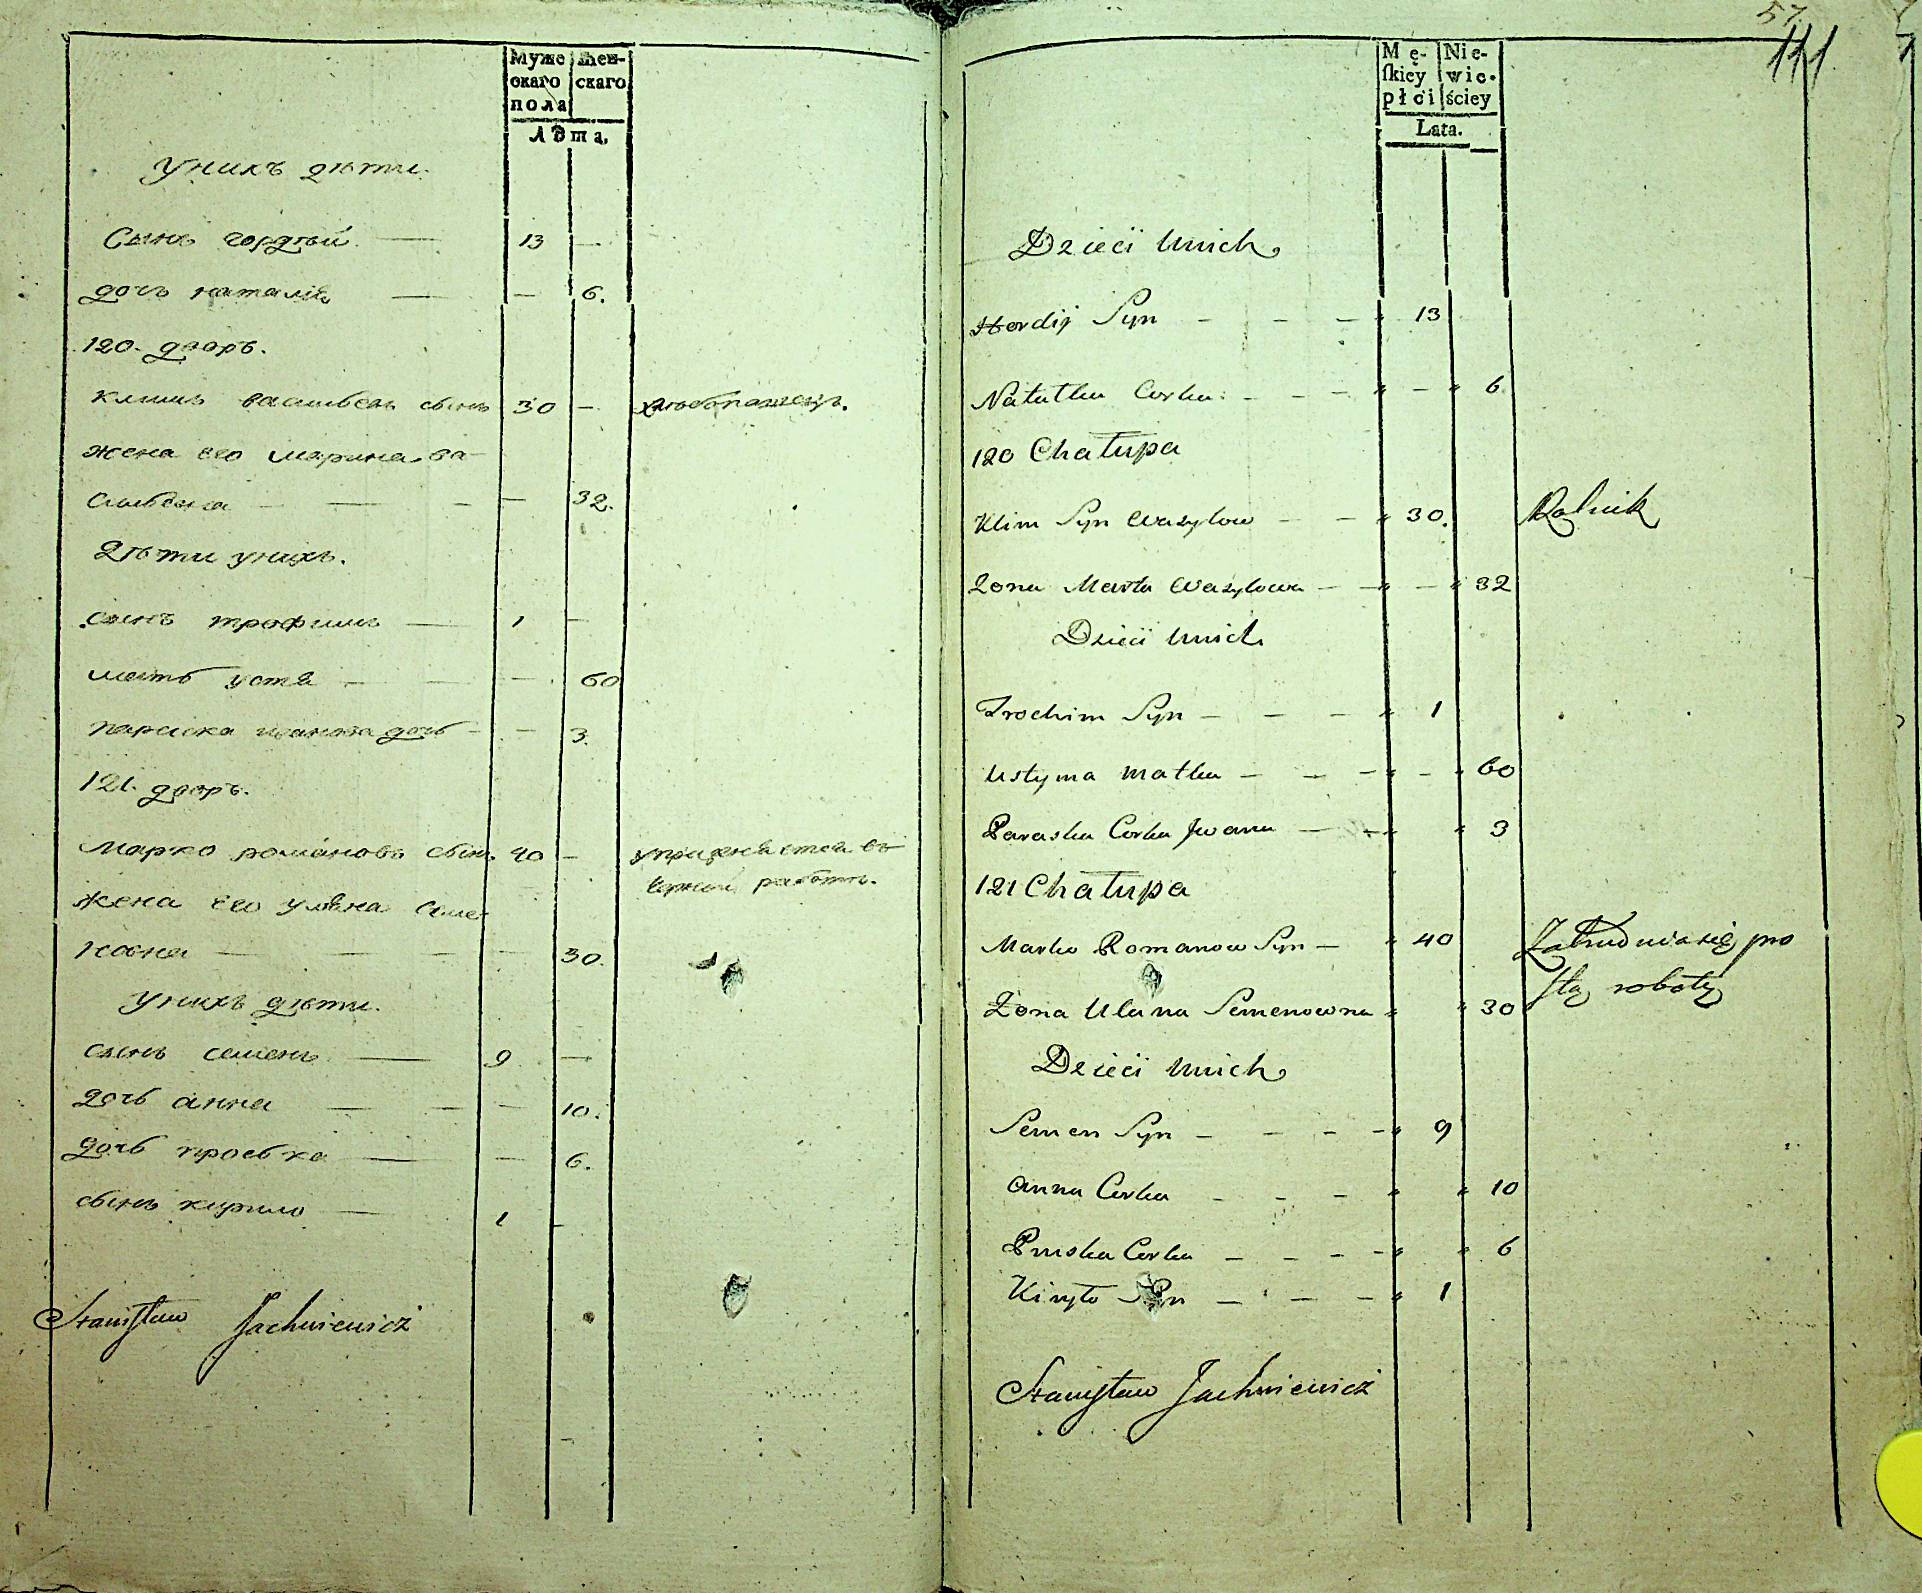 Муже
скаго
пола
Жен-
скаго
Лѣта.
Уникъ дѣти.
Сынъ гордѣй — 13 —
дочь наталія — — 6.
120. дворъ.
климъ васильевъ сынъ 30 — хлѣбопашецъ.
жена его марина ва-
сильевна — — — — 32.
дѣти унихъ.
сынъ трофимъ — 1 —
мать устя — — — 60
параска иванова дочь — — 3.
121. дворъ.
марко романовъ сынъ 40 — упражняется въ
черной работѣ.
жена его уляна семе-
новна — — — — 30.
Унихъ дѣти.
сынъ семенъ — 9 —
дочь анна — — — 10.
дочь проська — — 6.
сынъ кирило — 1 -
Stanisław Jachniewicz
57.
111
Mę-
skiey
płci
Nie-
wie-
ściey
Lata.
Dzieci Unich
Hordij Syn - - - " 13
Natałka Corka - - - " - " 6
120 Chałupa
Klim Syn Wasylow - - " 30. Rolnik
Żona Marta Wasylowa - - " - " 32
Dzieci Unich
Trochim Syn - - - " 1
Ustyma Matka - - - " - " 60
Paraska Corka Jwana - - - " 3
121 Chałupa
Marko Romanow Syn - " 40 Zatrudnia się pro
stą robotą
Żona Ulana Semenowna " " 30
Dzieci Unich
Semen Syn - - - - " 9
Anna Corka - - - " " 10
Pruska Corka - - - - " " 6
Kiryło Syn - - - - " 1
Stanisław Jachniewicz